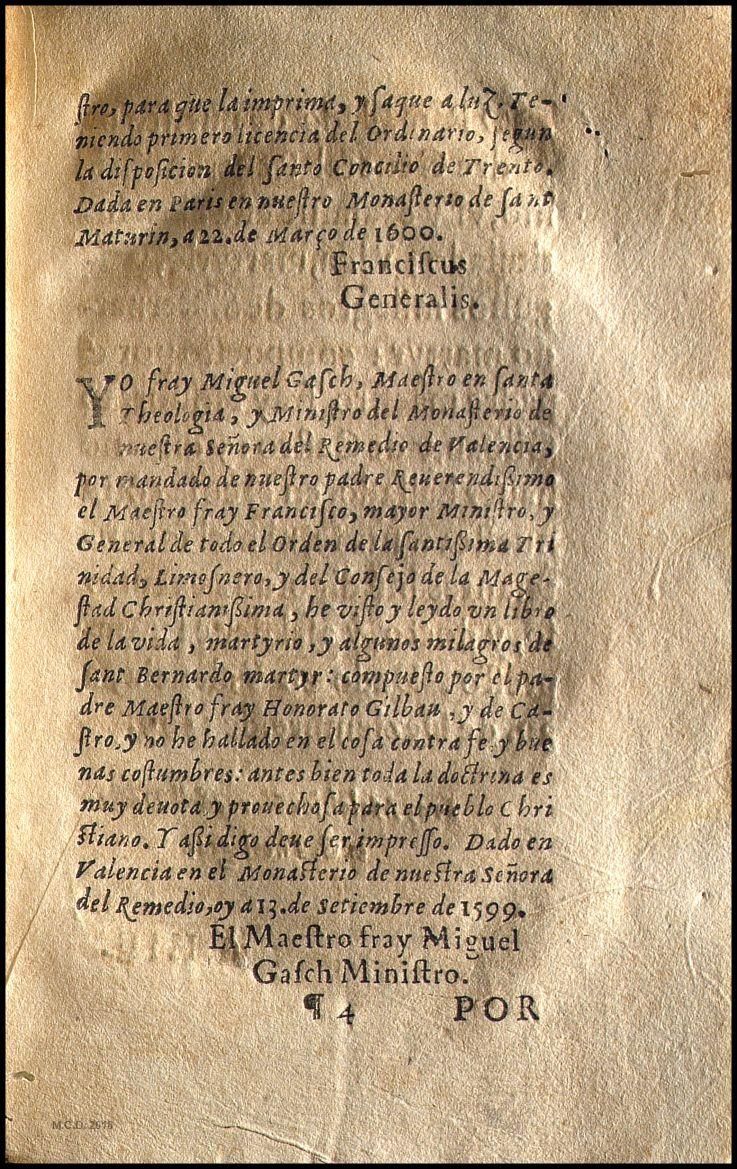 ſtro, para que la imprima, y ſaque a luz. Te-
niendo primero licencia del Ordinario, ſegun
la diſpoſicion del ſanto Concilio de Trento.
Dada en Paris en nueſtro Monaſterio de ſant
Maturin, a 22. de Março de 1600.
Franciſcus
Generalis.
YO fray Miguel Gaſch, Maeſtro en ſanta
Theologia, y Miniſtro del Monaſterio de
nueſtra Señora del Remedio de Valencia,
por mandado de nueſtro padre Reuerendißimo
el Maeſtro fray Franciſco, mayor Miniſtro, y
General de todo el Orden de la ſantißima Tri
nidad, Limoſnero, y del Conſejo de la Mage-
ſtad Chriſtianißima, he viſto y leydo vn libro
de la vida, martyrio, y algunos milagros de
ſant Bernardo martyr: compueſto por el pa-
dre Maeſtro fray Honorato Gilbau, y de Ca-
ſtro, y no he hallado en el coſa contra fe, y bue
nas coſtumbres: antes bien toda la doctrina es
muy deuota y prouechoſa para el pueblo Chri
ſtiano. Y aßi digo deue ſer impreſſo. Dado en
Valencia en el Monaſterio de nueſtra Señora
del Remedio, oy a 13. de Setiembre de 1599.
El Maeſtro fray Miguel
Gaſch Miniſtro.
¶ 4 POR
M.C.D. 2018